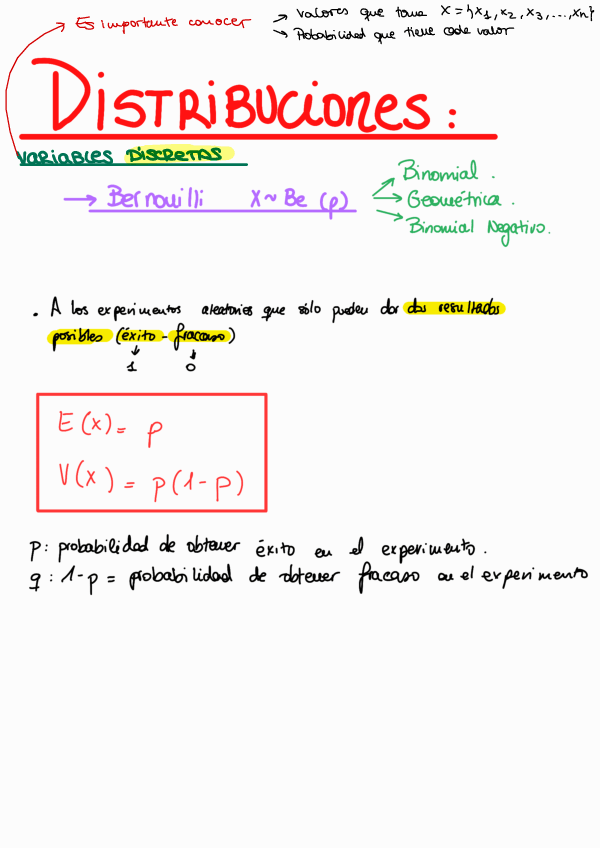 → Es importante conocer
→ Valores que toma X = {x1, x2, x3, ..., xn}
→ Probabilidad que tiene cada valor
DISTRIBUCIONES:
VARIABLES DISCRETAS
→ Bernouilli X ~ Be (p)
Binomial.
→ Geométrica.
Binomial Negativo.
. A los experimentos aleatorios que sólo pueden dar dos resultados
posibles (éxito - fracaso)
↓ ↓
1 0
E(x) = p
V(x) = p(1-p)
p: probabilidad de obtener éxito en el experimento.
q: 1-p = probabilidad de obtener fracaso en el experimento